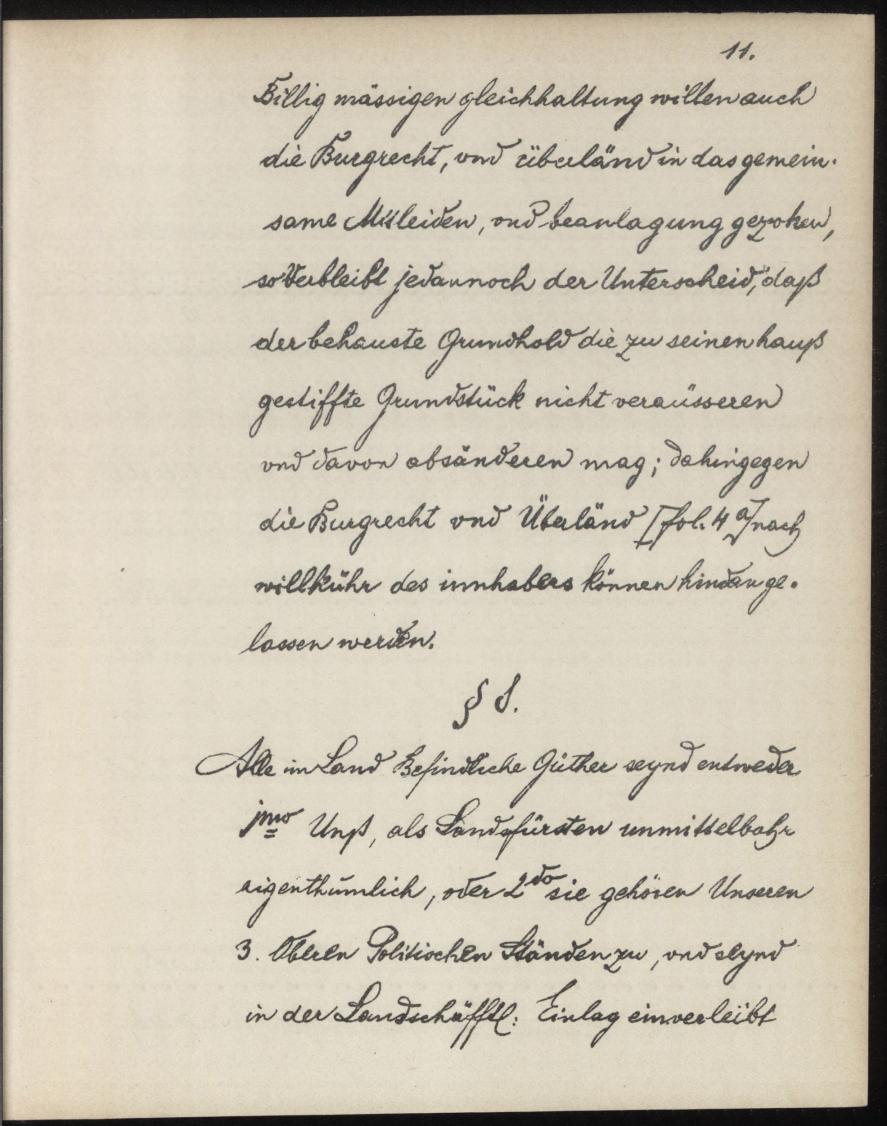 11.
Billig mässigen gleichhaltung willen auch
die Burgrecht, vnd überländ in das gemein-
same Mitleiden, vnd beanlagung gezohen,
so Verbleibt jedannoch der Unterscheid, daß
der behauste Grundhold die zu seinen hauß
gestiffte Grundstück nicht veraüsseren
vnd davon absänderen mag; dahingegen
die Burgrecht vnd Überländ [fol. 4 a] nach
willkühr des innhabers können hindan ge-
lassen werden.
§ 8.
Alle im Land Befindliche Güther seynd entweder
jmo Unß, als Landsfürsten unmittelbahr
eigenthümlich, oder 2do sie gehören Unseren
3. Oberen Politischen Ständen zu, vnd seynd
in der Landschäfftl: Einlag einverleibt